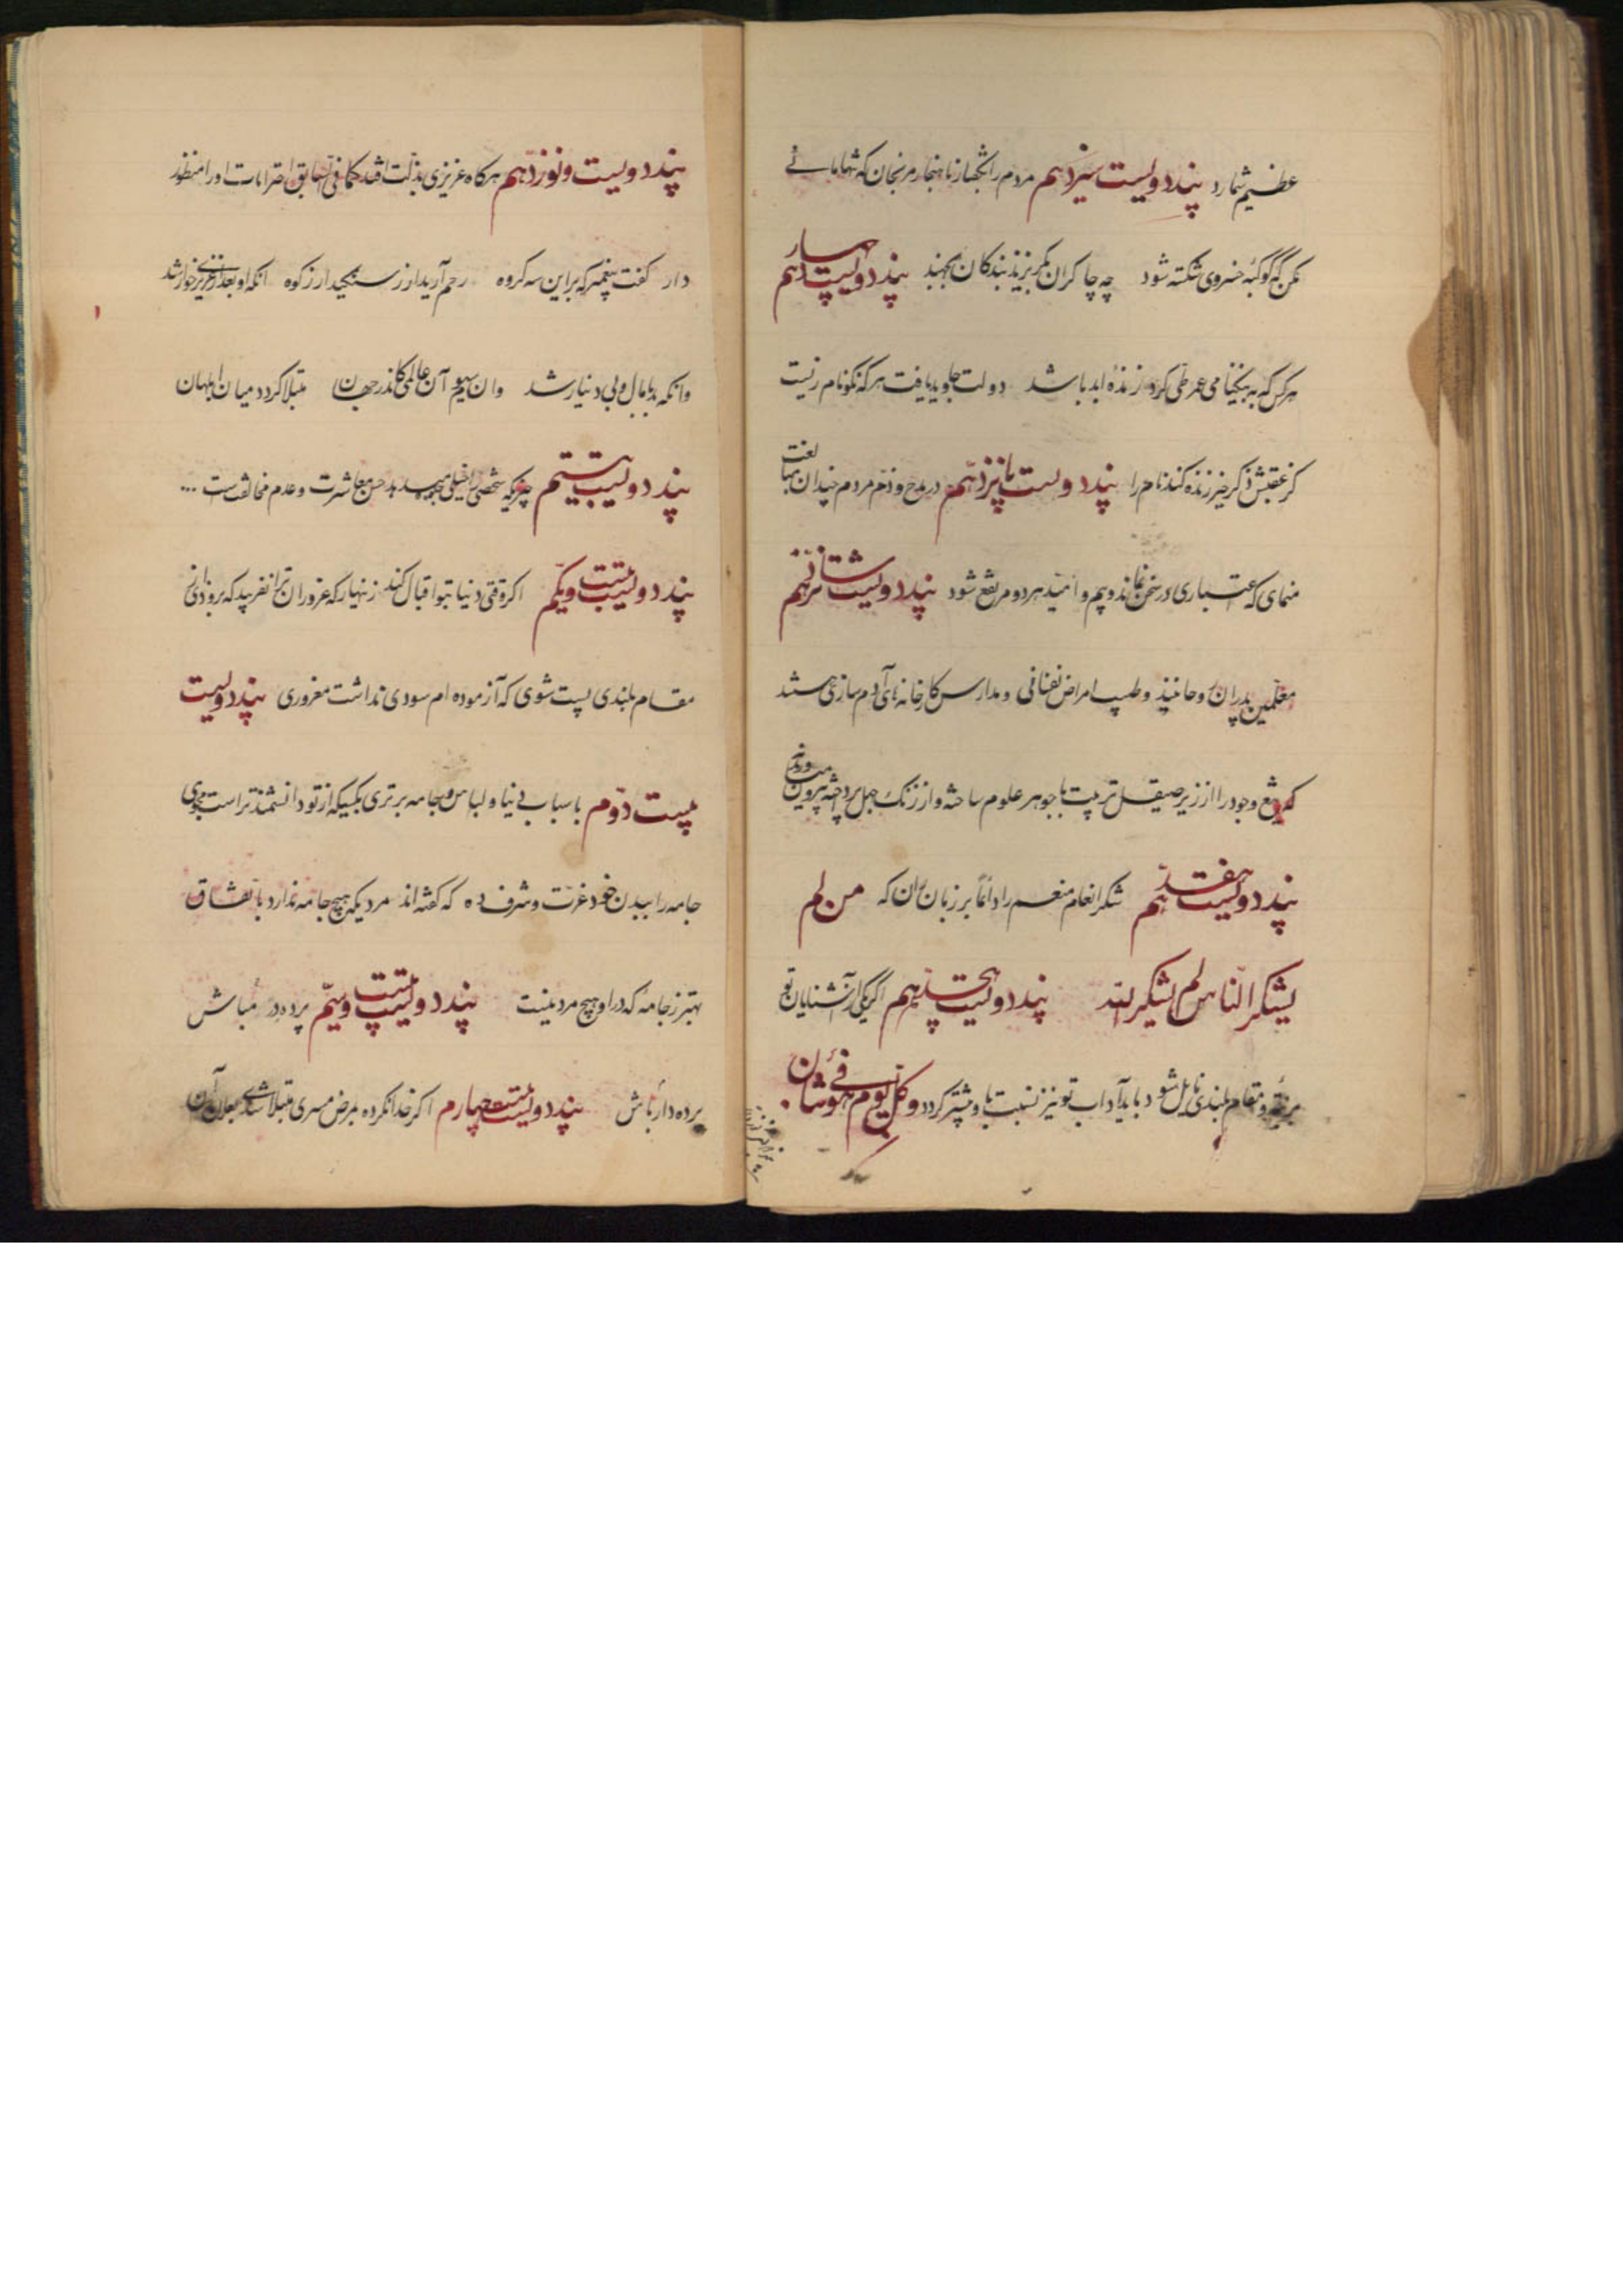 عظیم شمارد پند دویست سیزدهم مردم را بگفتار ناهنجار مرنجان که شها مائی
مکن که کوکبه خسروی شکسته شود چه چاکران بگریزند بندکان بجهند پند دویست چهاردهم
هر کس که به نیکنامی عمر طی کرد زنده ابد باشد دولت جاوید یافت هر که نکونام زیست
کز عقبش ذکر خیر زنده کند نام را پند دویست پانزدهم در مدح و ذم مردم چندان مبالغت
منمای که اعتباری در سخن نماند و بیم و امید هر دو مرتفع شود پند دویست شانزدهم
معلمین پدران روحانیند و طبیب امراض نفسانی و مدارس کارخانه های آدم سازی هستند
که تیغ وجود را از زیر صیقل تربیت با جوهر علوم ساخته و از زنک جهل پرداخته بیرون میاورند
پند دویست هفدهم شکر انعام منعم را دائماً بر زبان ران که من لم
یشکر الناس لم یشکر الله پند دویست هیجدهم اگر یکی از آشنایان تو
برتبه و مقام بلندی نایل شود باید آداب تو نیز نسبت باو بیشتر کردد و کل یوم هو فی شأن
پند دویست و نوزدهم هرکاه عزیزی بذلت افتد کما فی السابق احترامات او را منظور
دار کفت پیغمبر که بر این سه کروه رحم آرید ار ز سنکید ار ز کوه انکه او بعد از عزیزی خوار شد
وانکه بد با مال و بی دینار شد وان سیوم آن عالمی کاندر جهان مبتلا کردد میان ابلهان
پند دویست بیستم چیزیکه شخص را خیلی میدهد حسن معاشرت و عدم مخالفت است ...
پند دویست بیست و یکم اکر وقتی دنیا بتو اقبال کند زنهار که غرور ان ترا نفریبد که بزودی از
مقام بلندی پست شوی که آزموده ام سودی نداشت مغروری پند دویست
بیست دوم باسباب دنیا و لباس و جامه برتری بکسیکه از تو دانشمندتر است مجوی
جامه را ببدن خود عزت و شرف ده که کفته اند مردیکه هیچ جامه ندارد باتفاق
بهتر ز جامه که در او هیچ مرد نیست پند دویست بیست و سیم پرده در مباش
پرده دار باش پند دویست بیست چهارم اکر خدا نکرده بمرض مسری مبتلا شدی بعلاج آن